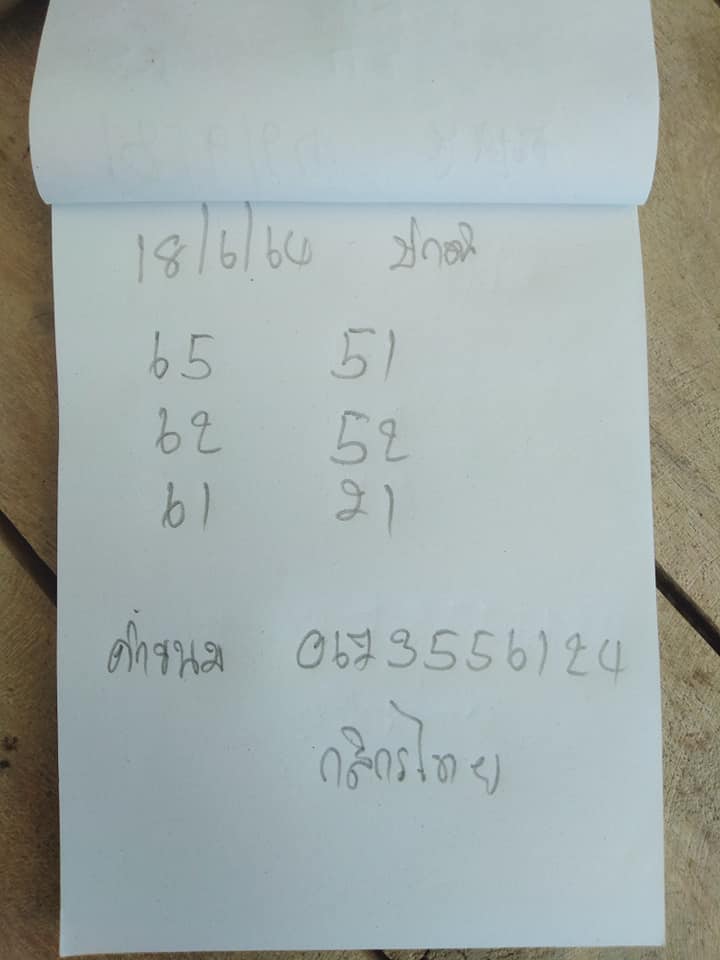 18/6/64 ปกติ
65 51
62 52
61 21
ค่าขนม 0673556124
กสิกรไทย